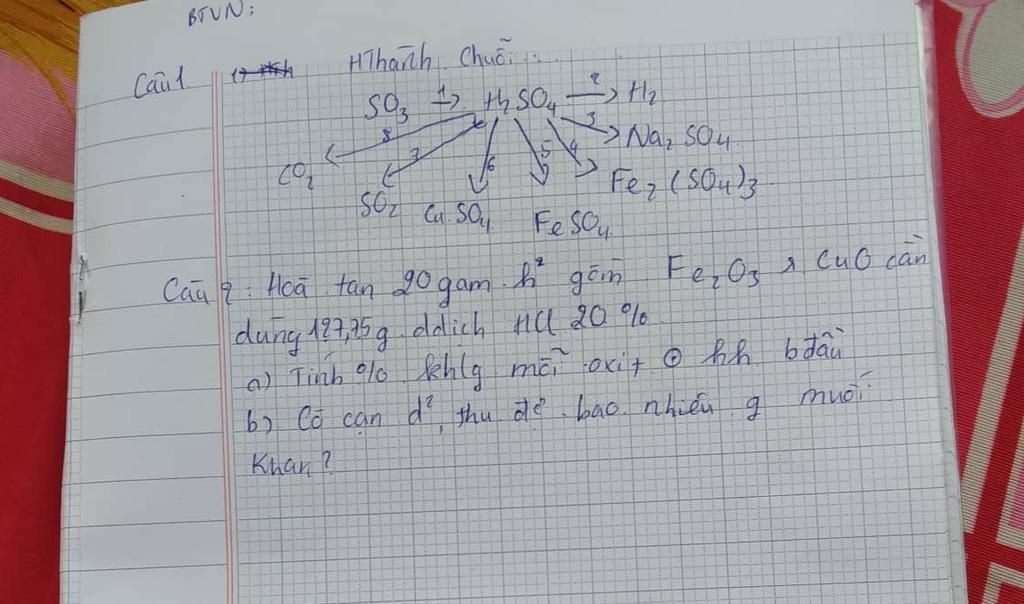 BTVN:
Câu 1 HThành Chuỗi:
SO3 1→ H2SO4 2→ H2
8 3 Na2SO4
CO2 7 6 5 4 Fe2(SO4)3
SO2 CuSO4 FeSO4
Câu 2: Hoà tan 20 gam h² gồm Fe2O3 & CuO cần
dùng 127,75 g ddịch HCl 20%
a) Tính % khlg mỗi oxit ⊕ hh bđầu
b) Cô cạn d², thu đc bao nhiêu g muối
Khan?